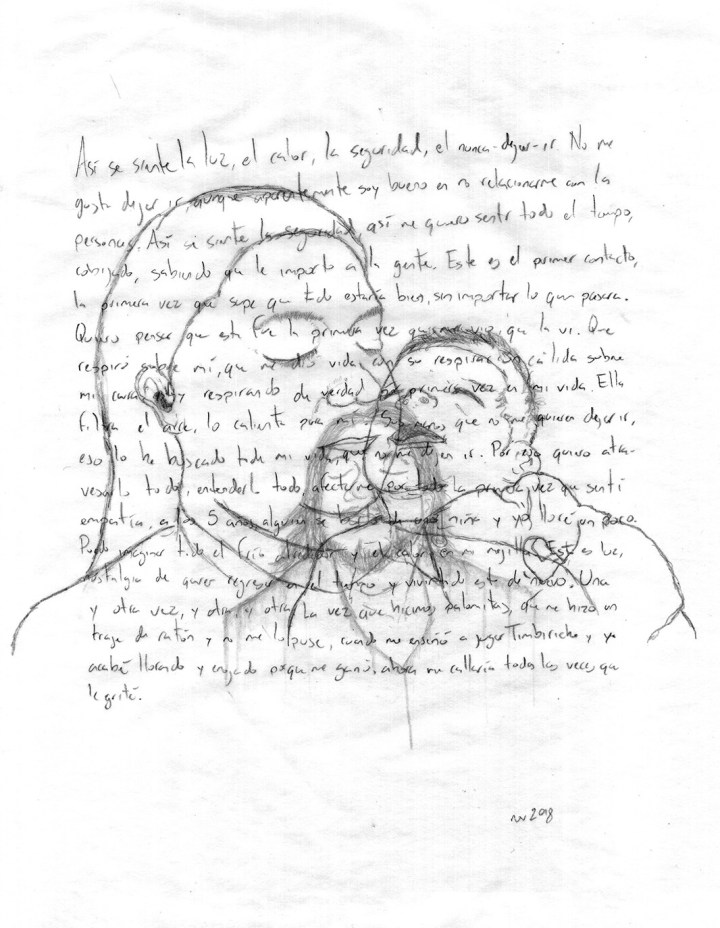 Así se siente la luz, el calor, la seguridad, el nunca-dejar-ir. No me
gusta dejar ir, aunque aparentemente soy bueno en no relacionarme con la
personas. Así se siente la seguridad, así me quiero sentir todo el tiempo,
cobijado, sabiendo que le importo a la gente. Este es el primer contacto,
la primera vez que supe que todo estaría bien, sin importar lo que pasara.
Quiero pensar que esta fue la primera vez que me vio, que la vi. Que
respiró sobre mí, que me dio vida con su respiración cálida sobre
mi cara y respirando de verdad por primera vez en mi vida. Ella
filtra el aire, lo calienta para mí. Sus manos que no me quieren dejar ir,
eso lo he buscado toda mi vida, que no me dejen ir. Por eso quiero atra-
vesarlo todo, entenderlo todo, afectarme por todo la primera vez que sentí
empatía, a los 5 años, alguien se de una niña y yo lloré un poco.
Puedo imaginar todo el frío alrededor y el calor en mi mejilla. Este es luz,
nostalgia de querer regresar en el tiempo y vivir todo esto de nuevo. Una
y otra vez, y otra y otra. La vez que hicimos palomitas, que me hizo un
traje de ratón y no me lo puse, cuando me enseñó a jugar Timbiriche y yo
acabé llorando y enojado porque me ganó, ahora me callaría todas las veces que
le grité.
2018